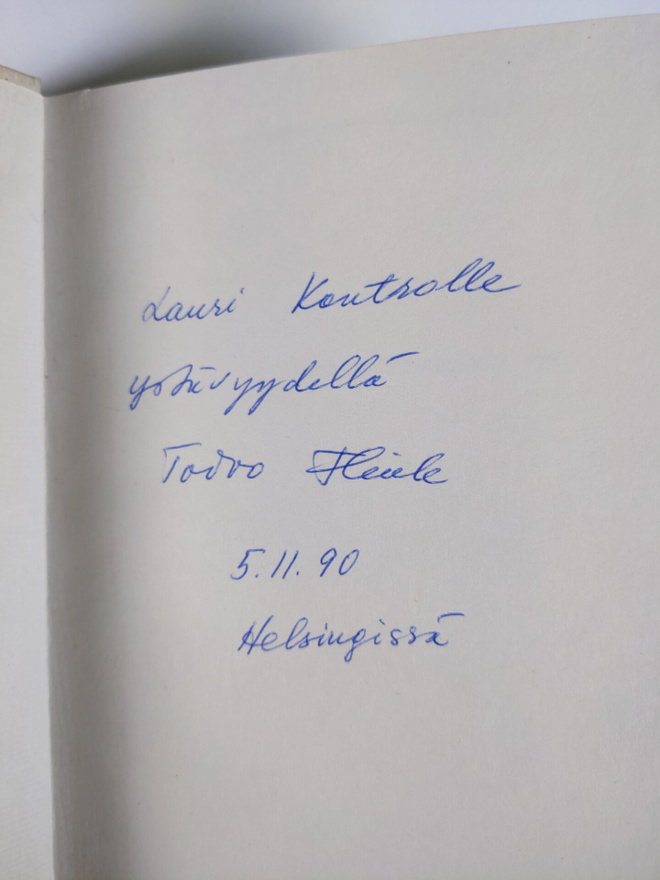 Lauri Kontrolle
ystävyydellä
Toivo
5.11.90
Helsingissä